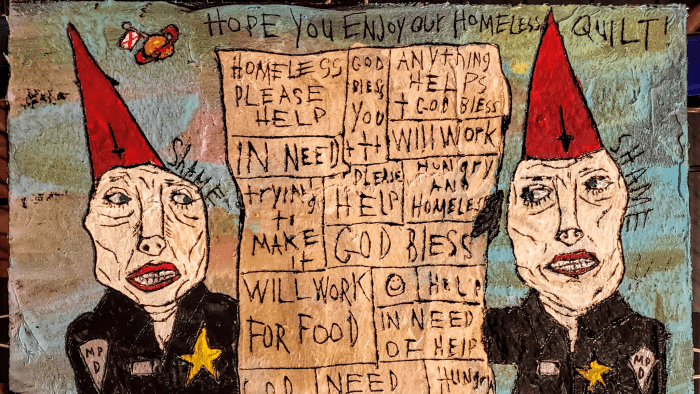 HOPE YOU ENJOY OUR HOMELESS QUILT!
HOMELESS
PLEASE
HELP
GOD
BLESS
YOU
ANYthING
HELPS
GOD BLESS
WIll WORK
IN NEED
PLEASE
HELP
HUNGRY
AND
HOMELESS
tryIng
to
MAKE
It
GOD BLESS
WILL WORK
FOR FOOD
HELP
IN NEED
OF HELP
GOD
NEED
HUNGRY
SHAME
SHAME
MPD
MPD